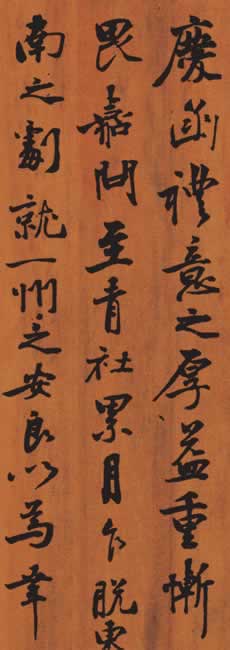 慶函禮意之厚益重慚
畏嘉問至青社累月乍脫東
南之劇就一州之安良以為幸